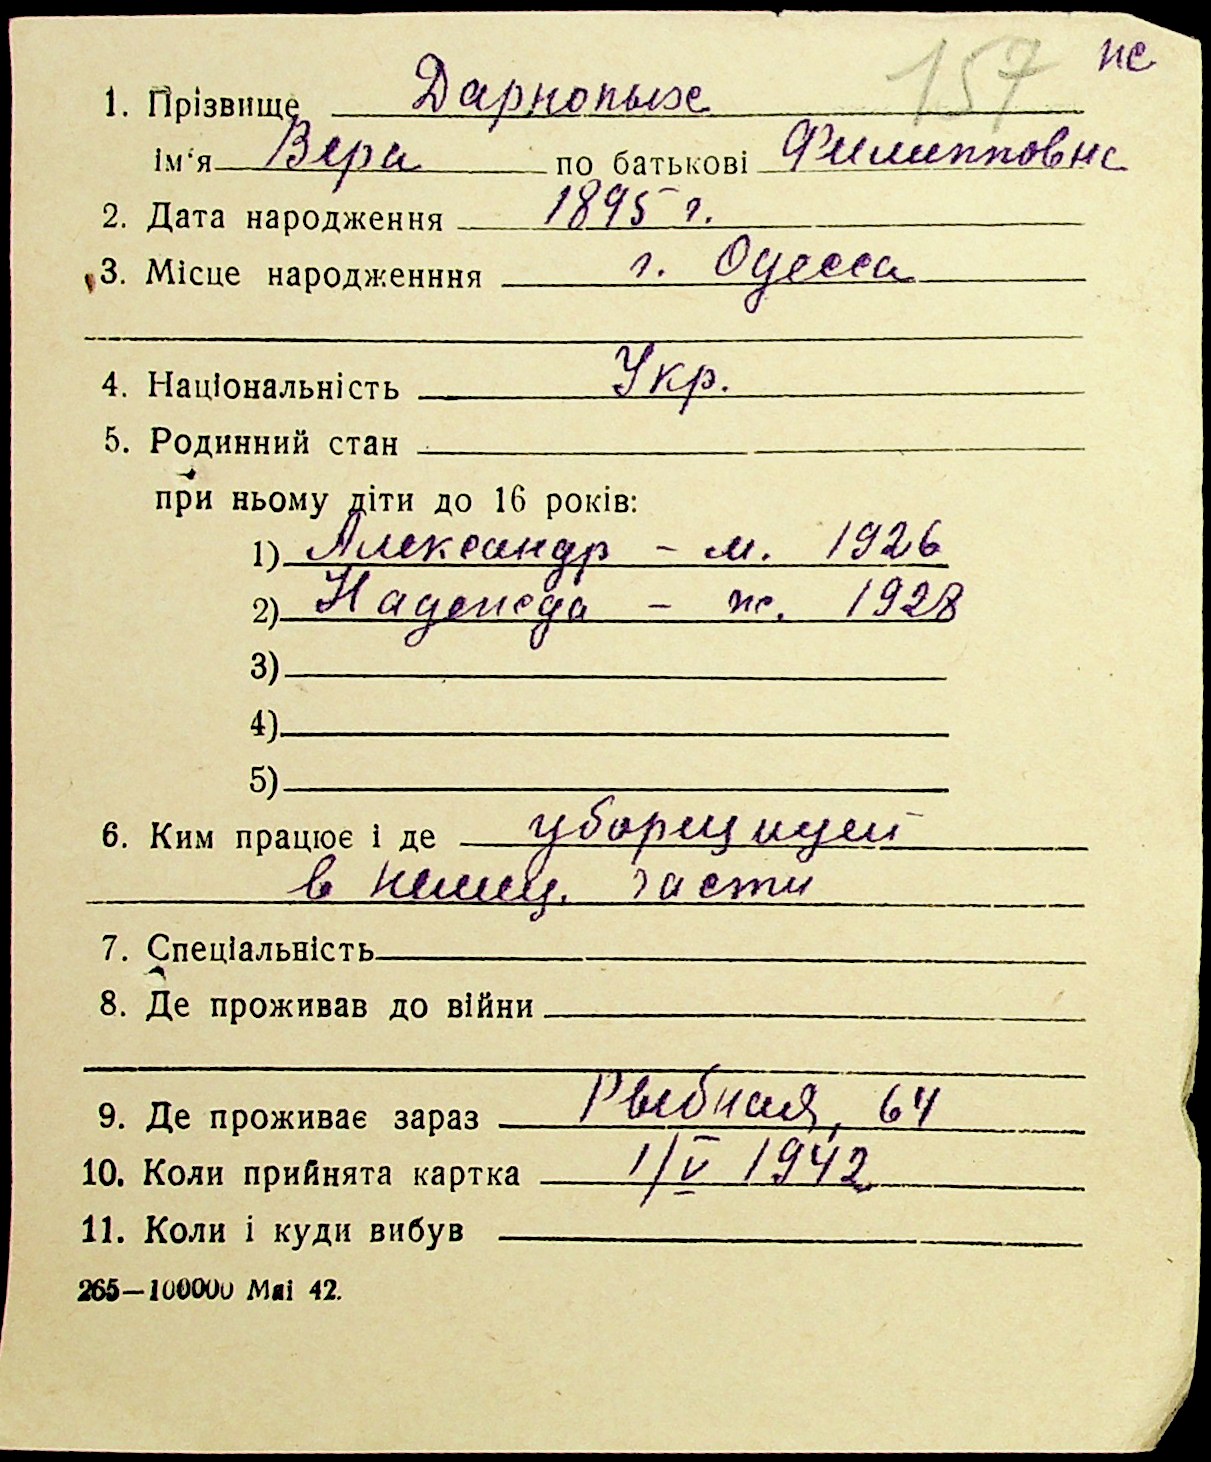 157 ж
1. Прізвище Дарнопых
ім'я Вера по батькові Филипповна
2. Дата народження 1895 г.
3. Місце народженння г. Одесса
4. Національність Укр.
5. Родинний стан
при ньому діти до 16 років:
1) Александр - м. 1926
2) Надежда - ж. 1928
3)
4)
5)
6. Ким працює і де уборщицей
в немец. части
7. Спеціальність
8. Де проживав до війни
9. Де проживає зараз Рыбная, 64
10. Коли прийнята картка 1/V 1942
11. Коли і куди вибув
265—100000 Маі 42.